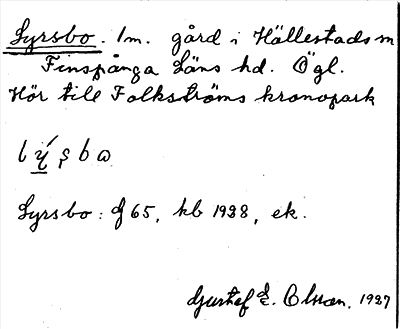 Lyrsbo. 1m. gård i Hällestads sn
Finspånga Läns hd. Ögl.
Hör till Folkströms kronopark
Lyrsbo: J 65, kb 1938, ek.
Gustaf E. Olsson. 1937